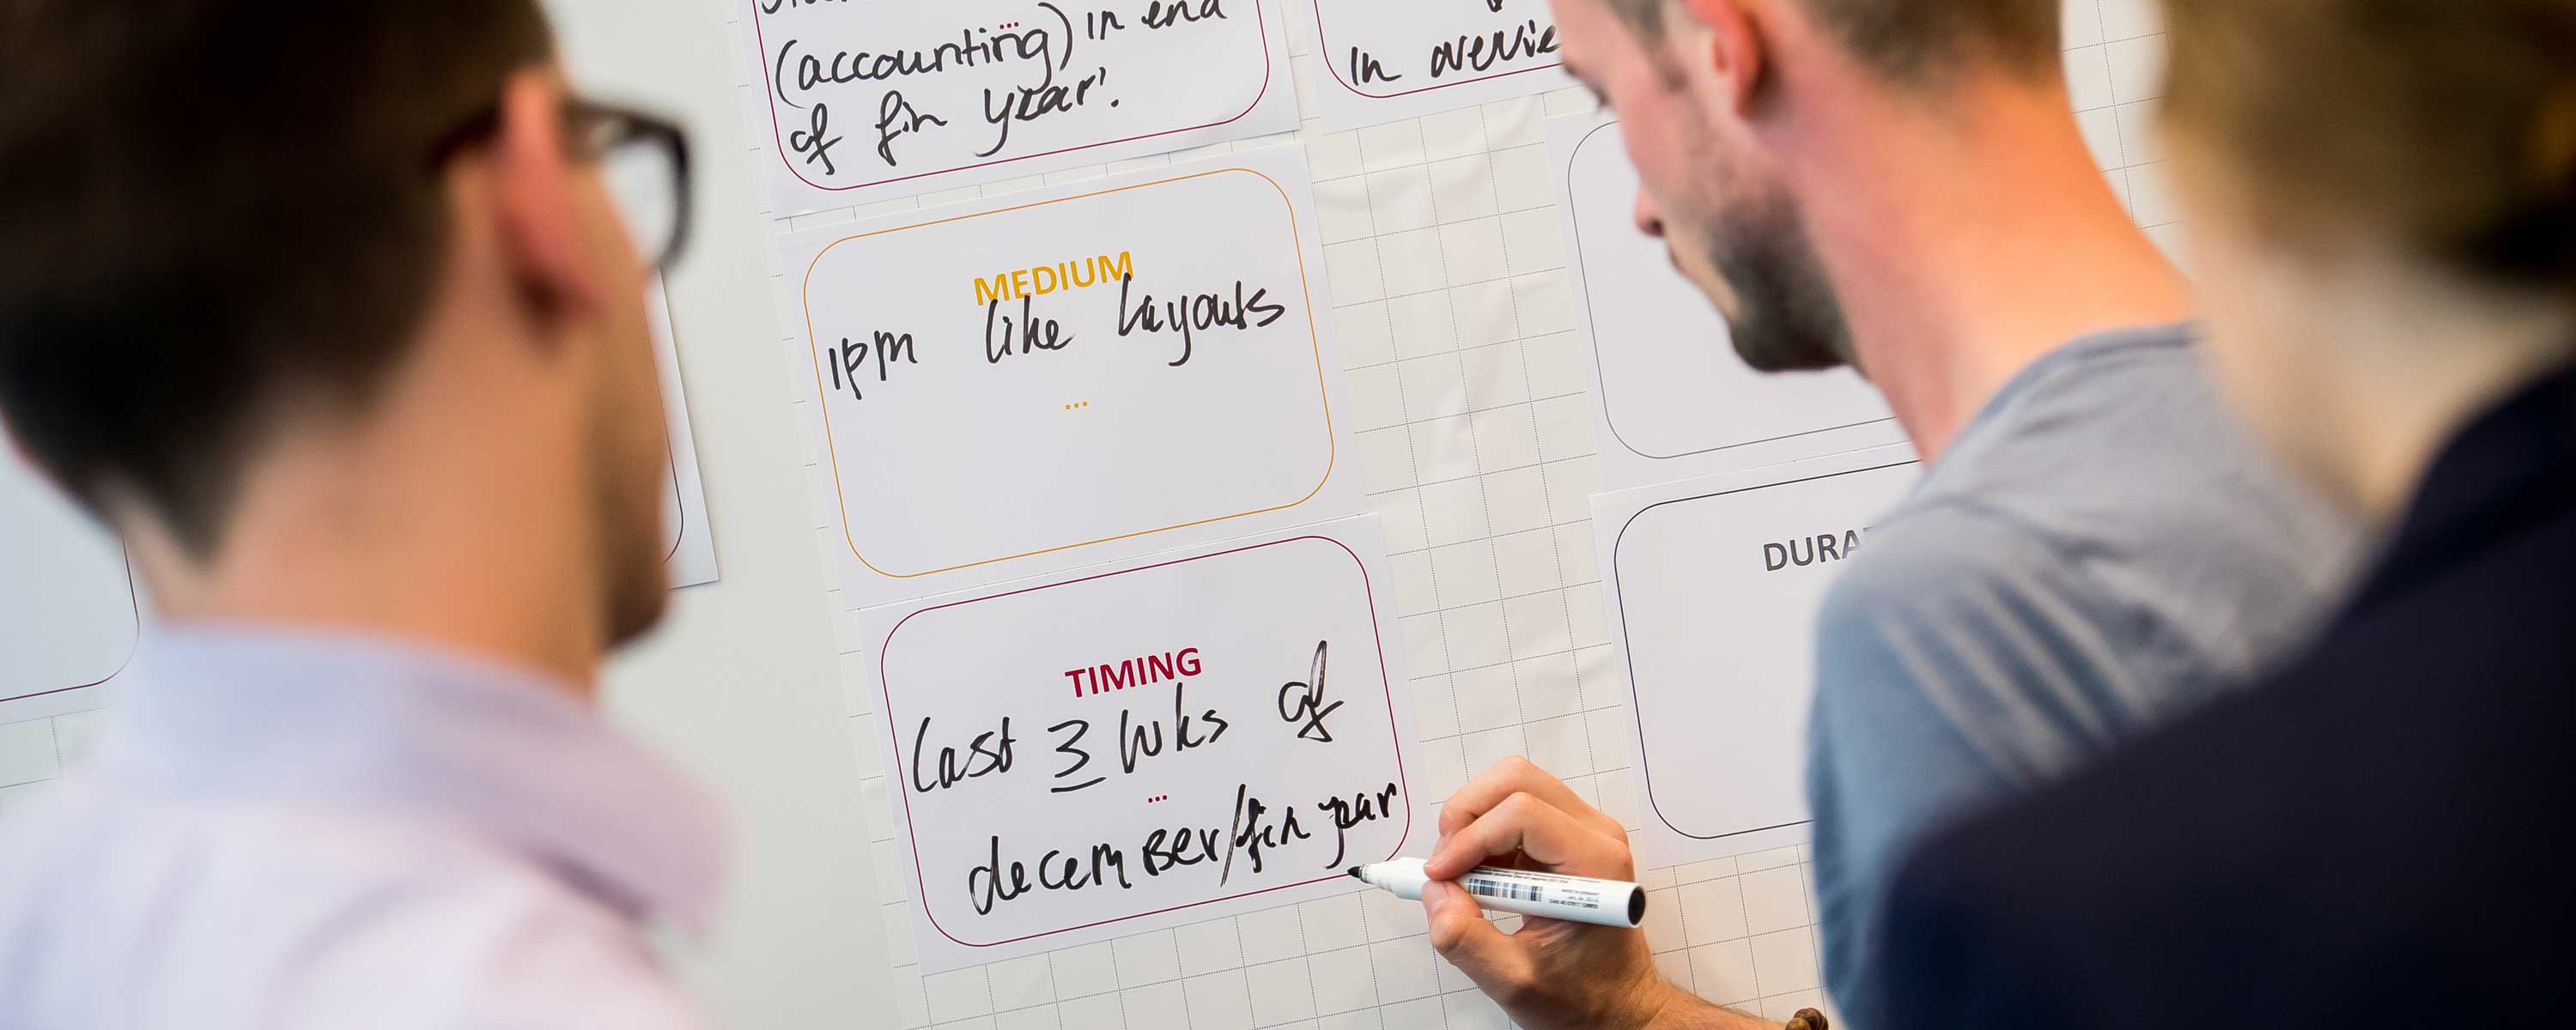 (accounting) in end
of fin year!
in
MEDIUM
1pm like layouts
...
TIMING
last 3 wks of
...
december/fin year
DURA